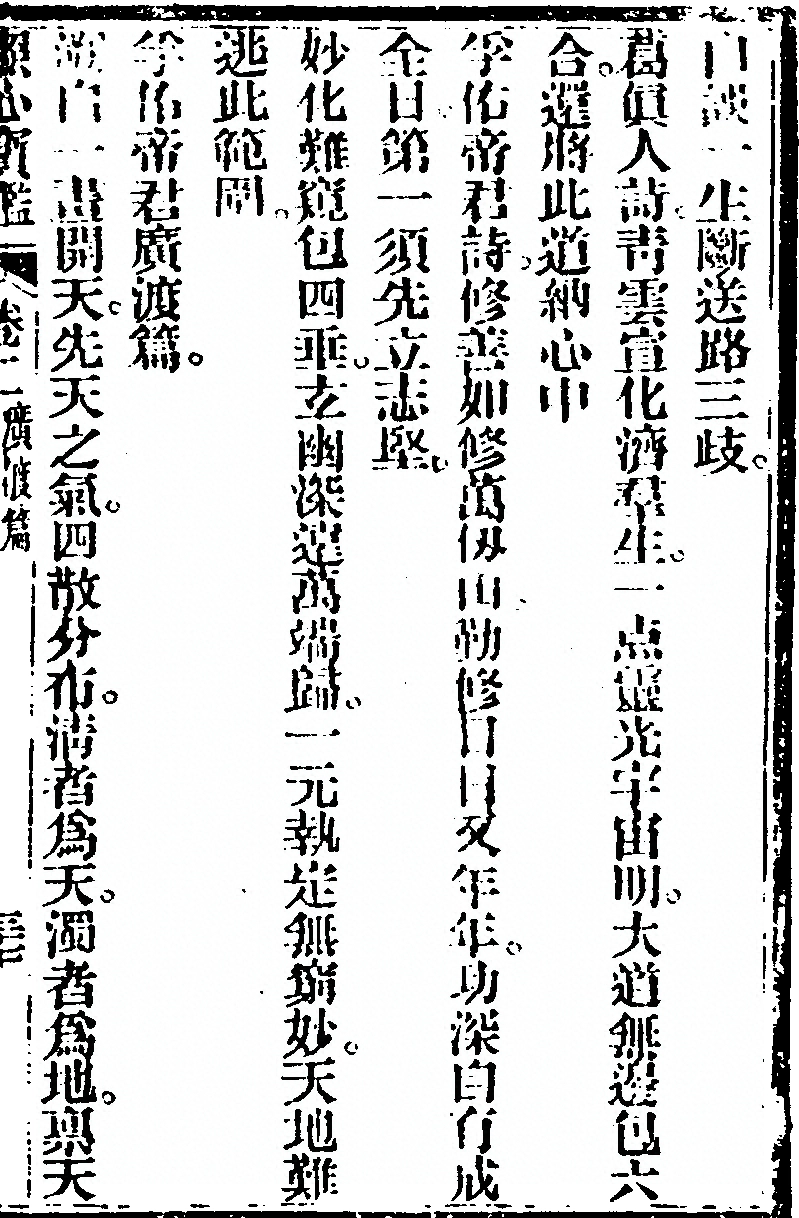 白談一生斷送路三歧。
葛眞人詩靑雲宣化濟羣生。一点靈光宇宙明。大道無邊包六
合。還將此道納心中
孚佑帝君詩。修善如修萬仭山勤修日日又年年。功深自有成
全日第一須先立志堅。
妙化難窺包四垂。玄幽深遠萬端歸。一元執定無窮妙。天地難
逃此範圍。
孚佑帝君廣渡篇。
溯自一畫開天。先天之氣。四散分布。淸者爲天。濁者爲地。稟天
心寶鑑 卷二 廣渡篇